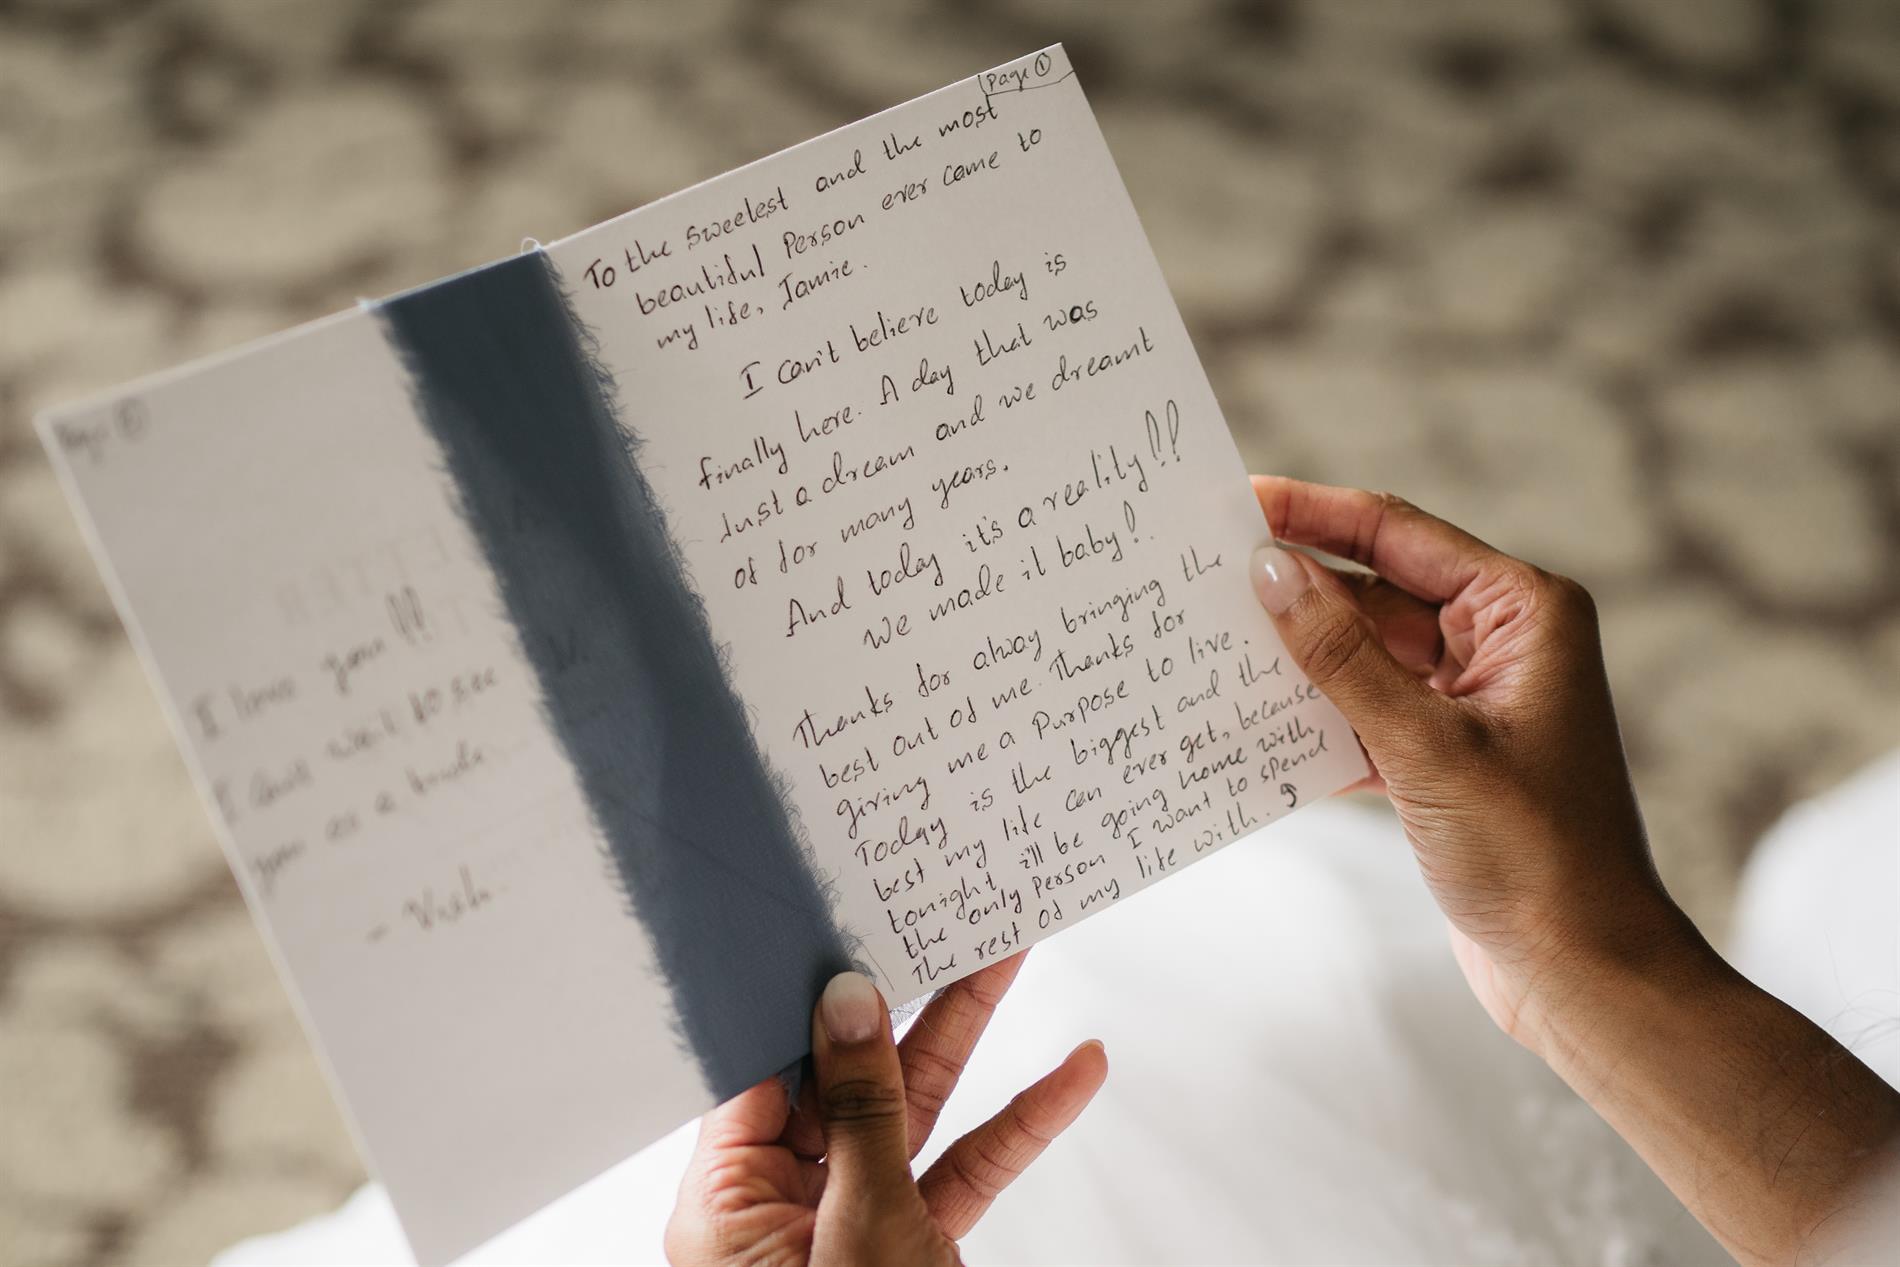 Page ①
To the sweetest and the most
beautiful Person ever came to
my life, Jamie.
I can't believe today is
finally here. A day that was
Just a dream and we dreamt
of for many years.
And today it's a reality!!!
We made it baby!.
Thanks for alway bringing the
best out of me. Thanks for
giving me a Purpose to live.
Today is the biggest and the
best my life can ever get, because
tonight i'll be going home with
the only Person I want to spend
The rest of my life with.
Page
I love you !!!
I can't wait to see
you as a bride